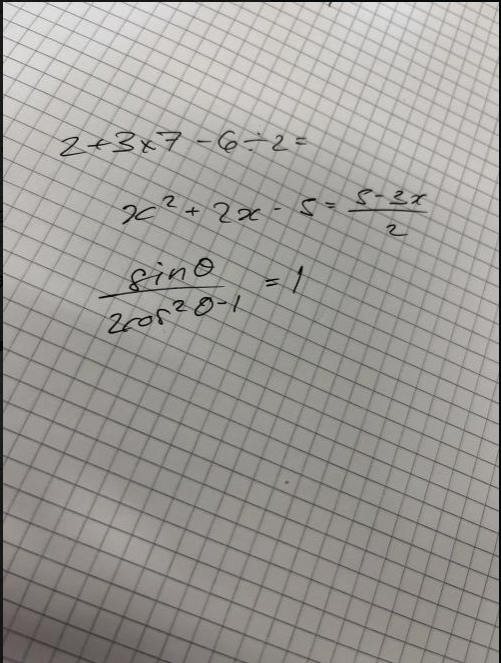 2+3×7-6÷2=
x²+2x-5=(5-3x)/2
sinθ/(2cos²θ-1)=1